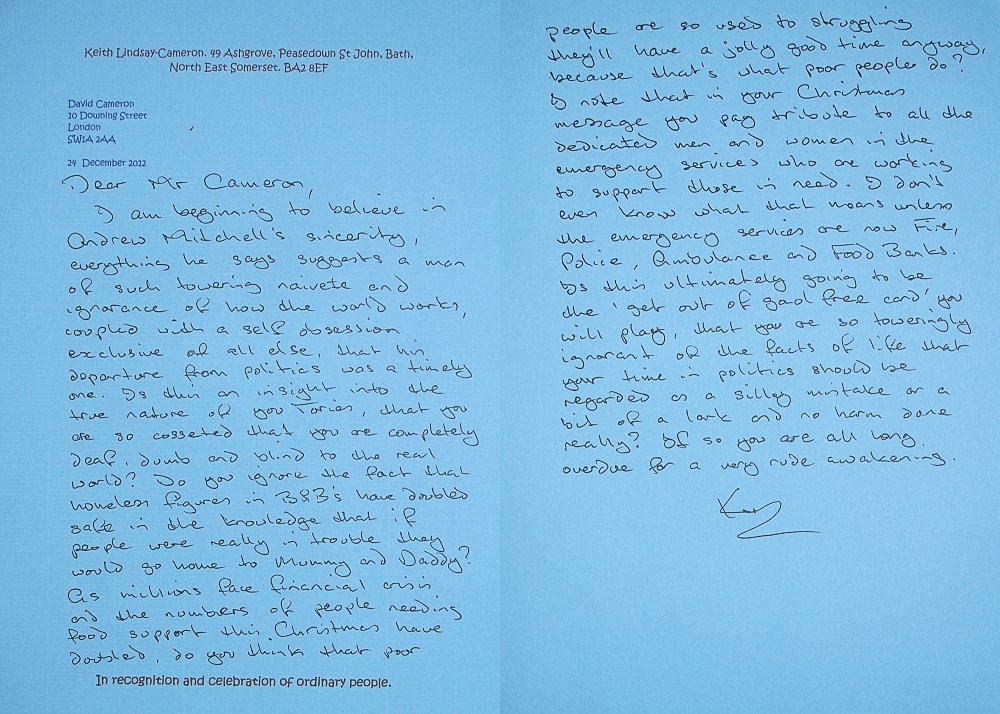 Keith Lindsay-Cameron. 49 Ashgrove, Peasedown St John, Bath,
North East Somerset. BA2 8EF
David Cameron
10 Downing Street
London
SW1A 2AA
24 December 2012
Dear Mr Cameron,
I am beginning to believe in
Andrew Mitchell's sincerity,
everything he says suggests a man
of such towering naivete and
ignorance of how the world works,
coupled with a self obsession
exclusive of all else, that his
departure from politics was a timely
one. Is this an insight into the
true nature of you Tories, that you
are so cosseted that you are completely
deaf, dumb and blind to the real
world? Do you ignore the fact that
homeless figures in B&B's have doubled
safe in the knowledge that if
people were really in trouble they
would go home to Mummy and Daddy?
As millions face financial crisis
and the numbers of people needing
food support this Christmas have
doubled, do you think that poor
In recognition and celebration of ordinary people.
people are so used to struggling
they'll have a jolly good time anyway,
because that's what poor people do?
I note that in your Christmas
message you pay tribute to all the
dedicated men and women in the
emergency services who are working
to support those in need. I don't
even know what that means unless
the emergency services are now Fire,
Police, Ambulance and Food Banks.
Is this ultimately going to be
the 'get out of gaol free card' you
will play, that you are so toweringly
ignorant of the facts of life that
your time in politics should be
regarded as a silly mistake or a
bit of a lark and no harm done
really? If so you are all long
overdue for a very rude awakening.